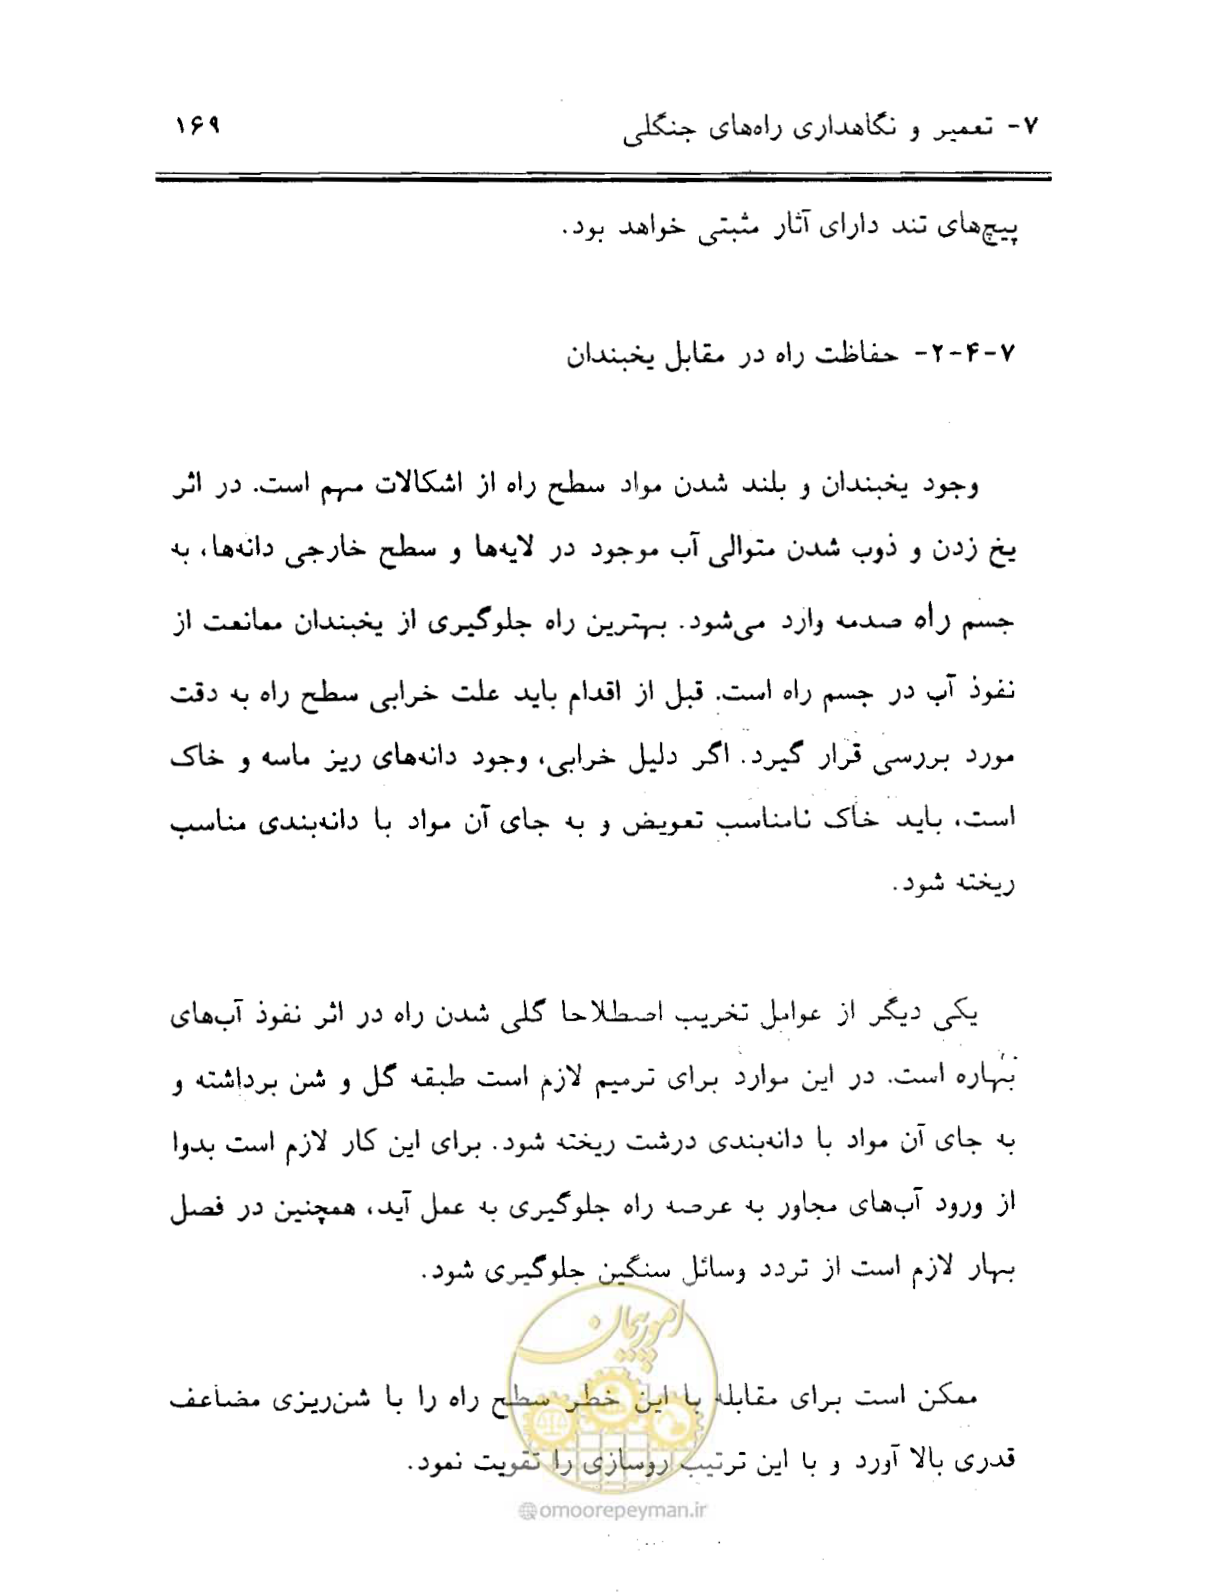 ۷- تعمیر و نگاهداری راه‌های جنگلی ۱۶۹
پیچ‌های تند دارای آثار مثبتی خواهد بود.
۷-۴-۲- حفاظت راه در مقابل یخبندان
وجود یخبندان و بلند شدن مواد سطح راه از اشکالات مهم است. در اثر
یخ زدن و ذوب شدن متوالی آب موجود در لایه‌ها و سطح خارجی دانه‌ها، به
جسم راه صدمه وارد می‌شود. بهترین راه جلوگیری از یخبندان ممانعت از
نفوذ آب در جسم راه است. قبل از اقدام باید علت خرابی سطح راه به دقت
مورد بررسی قرار گیرد. اگر دلیل خرابی، وجود دانه‌های ریز ماسه و خاک
است، باید خاک نامناسب تعویض و به جای آن مواد با دانه‌بندی مناسب
ریخته شود.
یکی دیگر از عوامل تخریب اصطلاحا گلی شدن راه در اثر نفوذ آب‌های
بهاره است. در این موارد برای ترمیم لازم است طبقه گل و شن برداشته و
به جای آن مواد با دانه‌بندی درشت ریخته شود. برای این کار لازم است بدوا
از ورود آب‌های مجاور به عرصه راه جلوگیری به عمل آید، همچنین در فصل
بهار لازم است از تردد وسائل سنگین جلوگیری شود.
امور پیمان
ممکن است برای مقابله با این خطر سطح راه را با شن‌ریزی مضاعف
قدری بالا آورد و با این ترتیب روسازی را تقویت نمود.
@omoorepeyman.ir